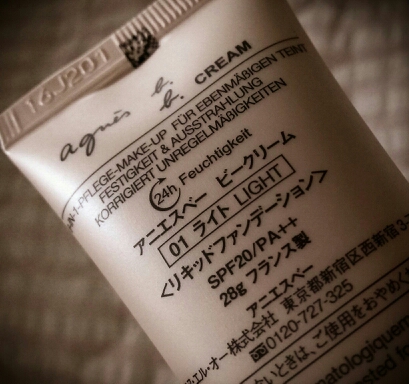 16J201
agnès b.
b. CREAM
-IN-1-PFLEGE-MAKE-UP FÜR EBENMÄßIGEN TEINT
FESTIGKEIT & AUSSTRAHLUNG
KORRIGIERT UNREGELMÄßIGKEITEN
24h Feuchtigkeit
アニエスベー ビークリーム
01 ライト LIGHT
<リキッドファンデーション>
SPF20/PA++
28g フランス製
アニエスベー
エル・オー株式会社 東京都新宿区西新宿3-
0120-727-325
ないときは、ご使用をおやめく